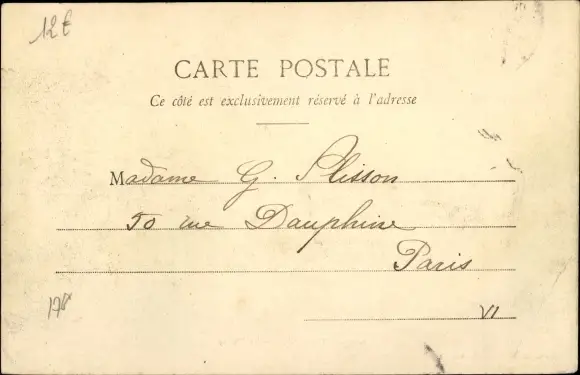 12€
CARTE POSTALE
Ce côté est exclusivement réservé à l'adresse
Madame G. Plisson
50 rue Dauphine
Paris
VI